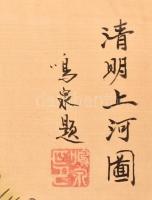 清明上河圖
鳴泉題